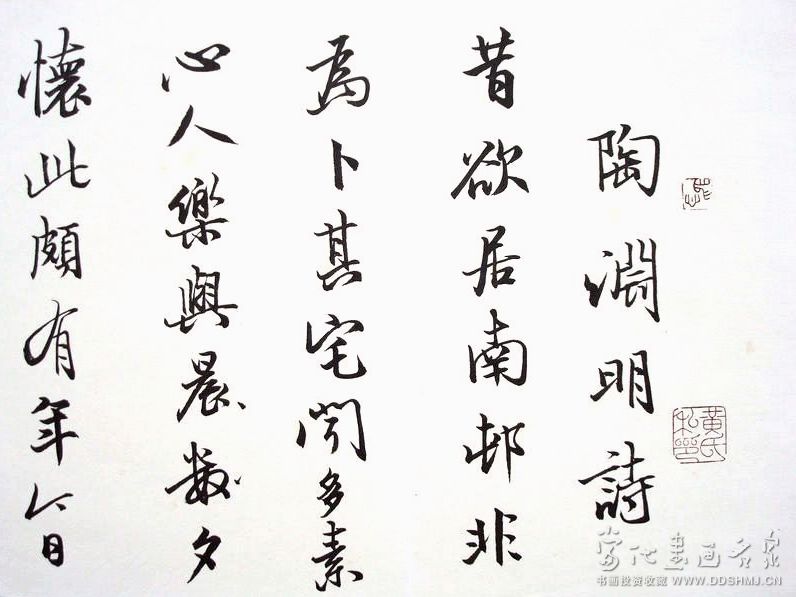 陶淵明詩
昔欲居南邨非
為卜其宅聞多素
心人樂與晨數夕
懷此頗有年今日
黃氏私印
当代书画名家
书画投资收藏 WWW.DDSHMJ.CN